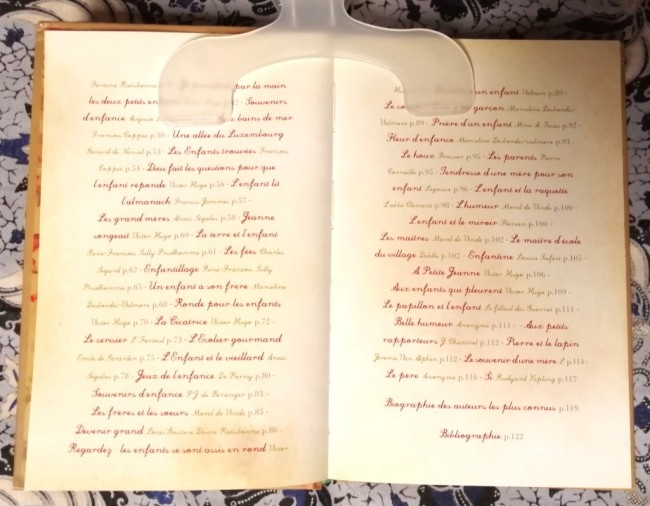 par la main
les deux petits · Souvenirs
d'enfance bains de mer
François Coppée p.50 · Une allée du Luxembourg
Gerard de Nerval p.53 · Les Enfants trouvées François
Coppée p.54 · Dieu fait les questions pour que
l'enfant réponde Victor Hugo p.56 · L'enfant lit
l'almanach Francis Jammes p.57 ·
Les grand mères Anais Segalas p.58 · Jeanne
songeait Victor Hugo p.60 · La terre et l'enfant
René-François Sully Prudhomme p.61 · Les fées Charles
p.62 · Enfantillage René-François Sully
Prudhomme p.65 · Un enfant a son frère Marceline
Desbordes-Valmore p.68 · Ronde pour les enfants
Victor Hugo p.70 · La Cicatrice Victor Hugo p.72 ·
Le cerisier p.73 · L'Ecolier gourmand
Emile de Girardin p.75 · L'Enfant et le vieillard Anais
Segalas p.78 · Jeux de l'enfance De Parny p.80 ·
Souvenirs d'enfance P.J de Beranger p.83 ·
Les frères et les soeurs Morel de Vinde p.85 ·
Devenir grand Louis Gustave Ratisbonne p.86 ·
Regardez : les enfants se sont assis en rond Victor
un enfant Valmore p.89 ·
garçon Marceline Desbordes-
Valmore p.89 · Prière d'un enfant Mme A Tastu p.92 ·
Fleur d'enfance Marceline Desbordes-valmore p.93 ·
Le houx p.95 · Les parents Pierre
Corneille p.95 · Tendresse d'une mère pour son
enfant p.96 · L'enfant et la raquette
p.98 · L'humeur Morel de Vinde p.100 ·
L'enfant et le miroir p.100 ·
Les maîtres Morel de Vinde p.102 · Le maître d'école
du village Delille p.102 · Enfantine p.105 ·
A Petite Jeanne Victor Hugo p.106 ·
Aux enfants qui pleurent Victor Hugo p.109 ·
Le papillon et l'enfant Le filleul des Guerrois p.111 ·
Belle humeur Anonyme p.111 · · Aux petits
rapporteurs J Chantrel p.112 · Pierre et le lapin
Jerome Van Alphen p.112 · Le souvenir d'une mère p.114 ·
Le père Anonyme p.116 · Si Rudyard Kipling p.117
Biographie des auteurs les plus connus p.119
Bibliographie p.122